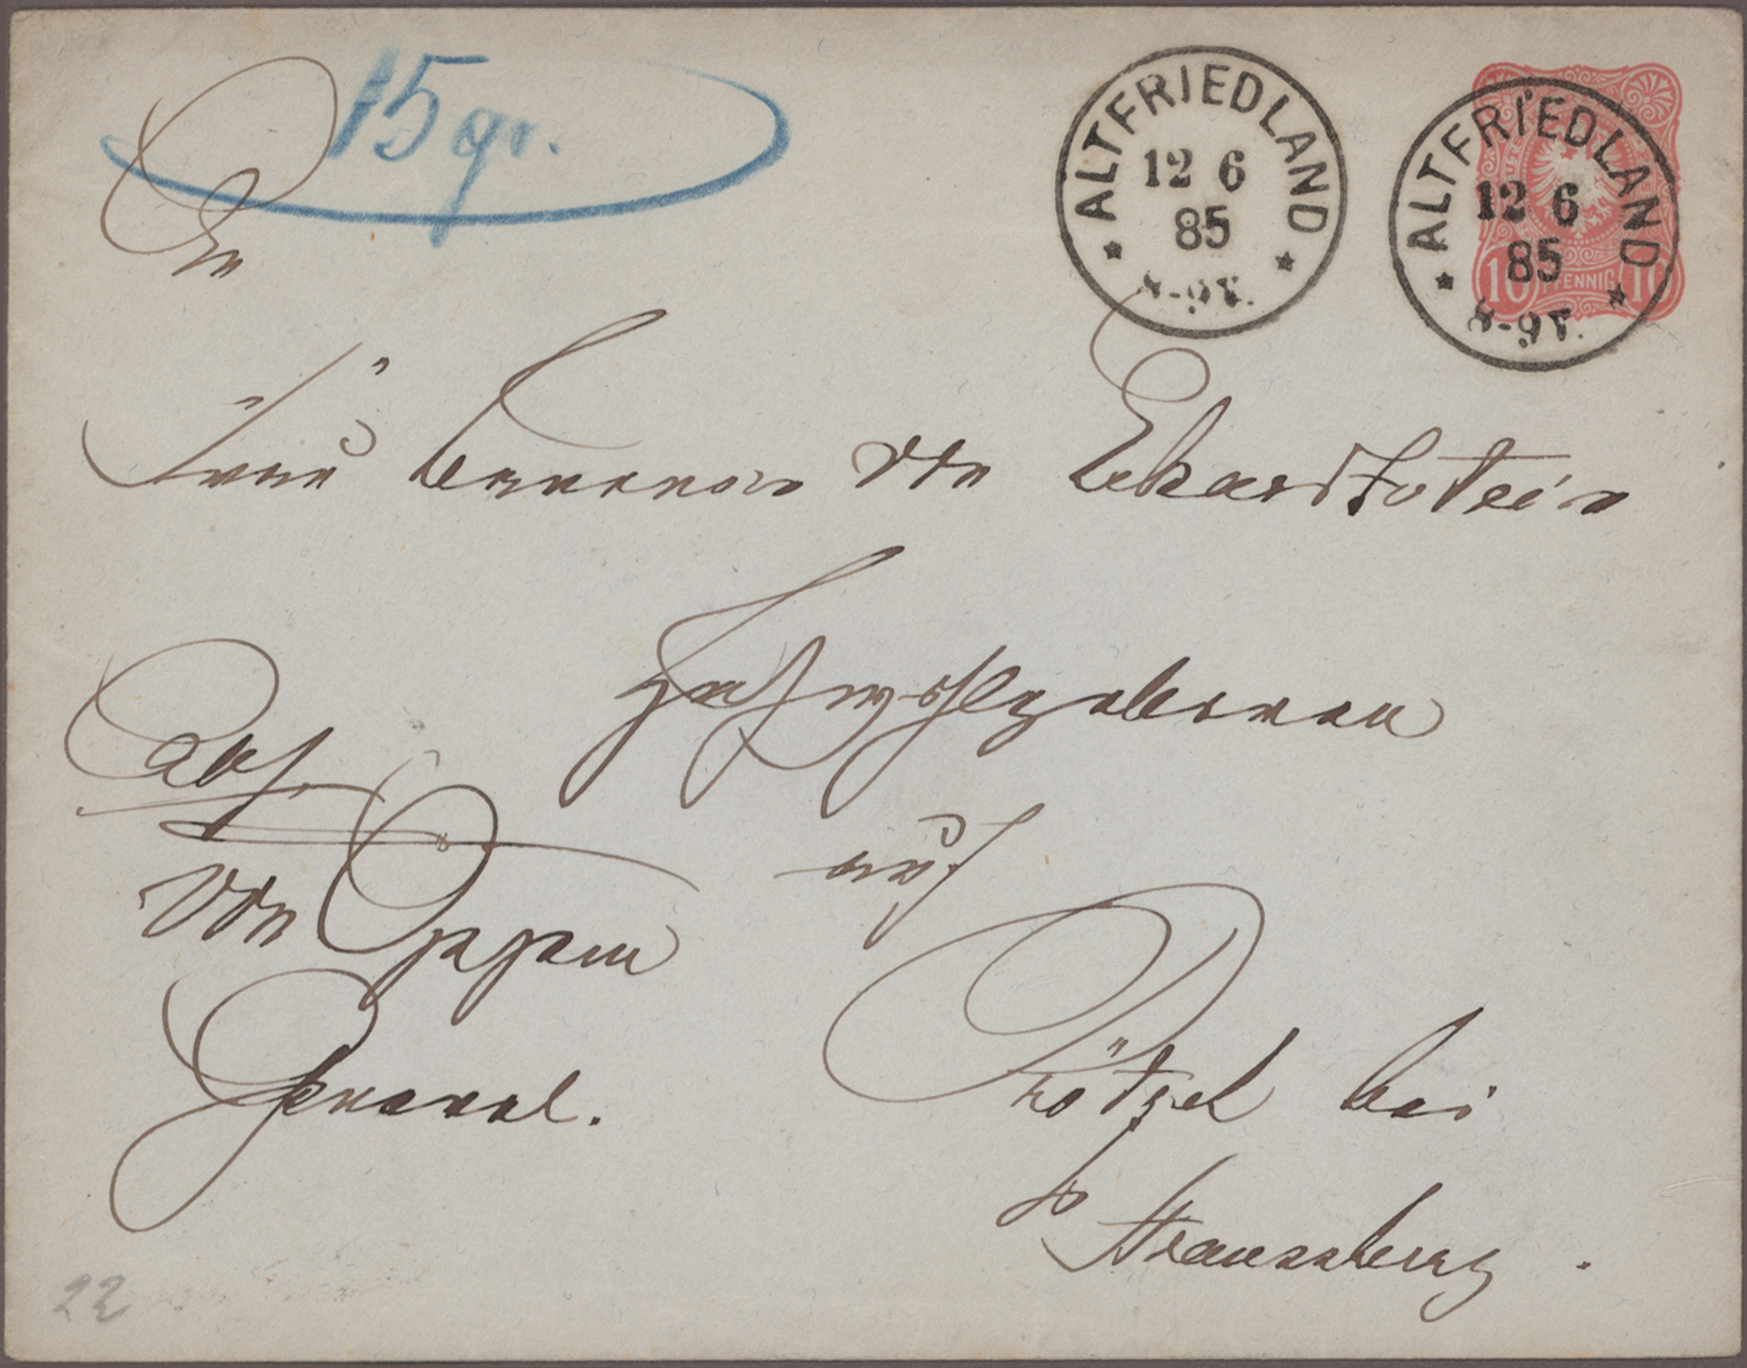 15 gr.
ALTFRIEDLAND
12 6
85
8-9V.
ALTFRIEDLAND
12 6
85
8-9V.
10 PFENNIG 10
An
Frau Baronin von Eckardtstein
Hochwohlgeboren
Abs.
von Oppen
General.
auf
Prötzel bei
Straussberg.
22